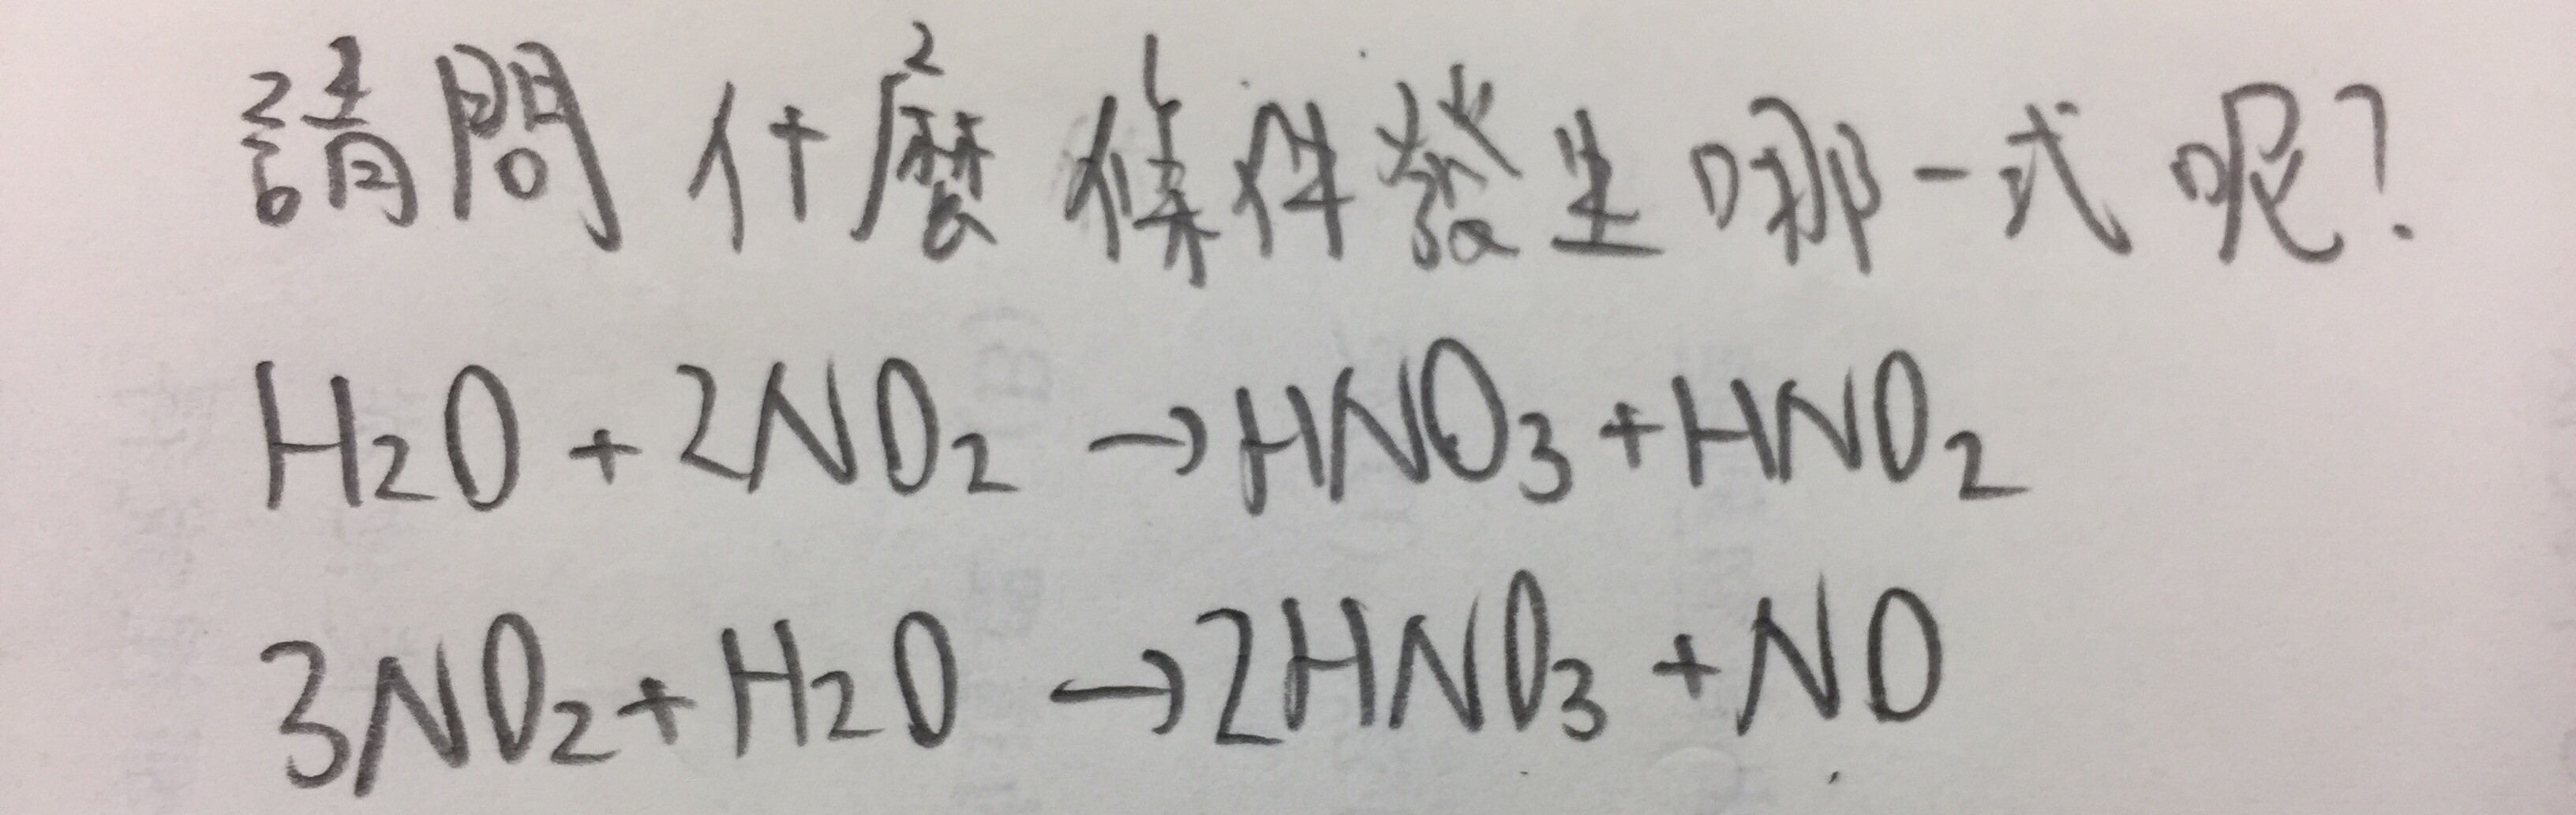 請問什麼條件發生哪一式呢?
H₂O + 2NO₂ → HNO₃ + HNO₂
3NO₂ + H₂O → 2HNO₃ + NO